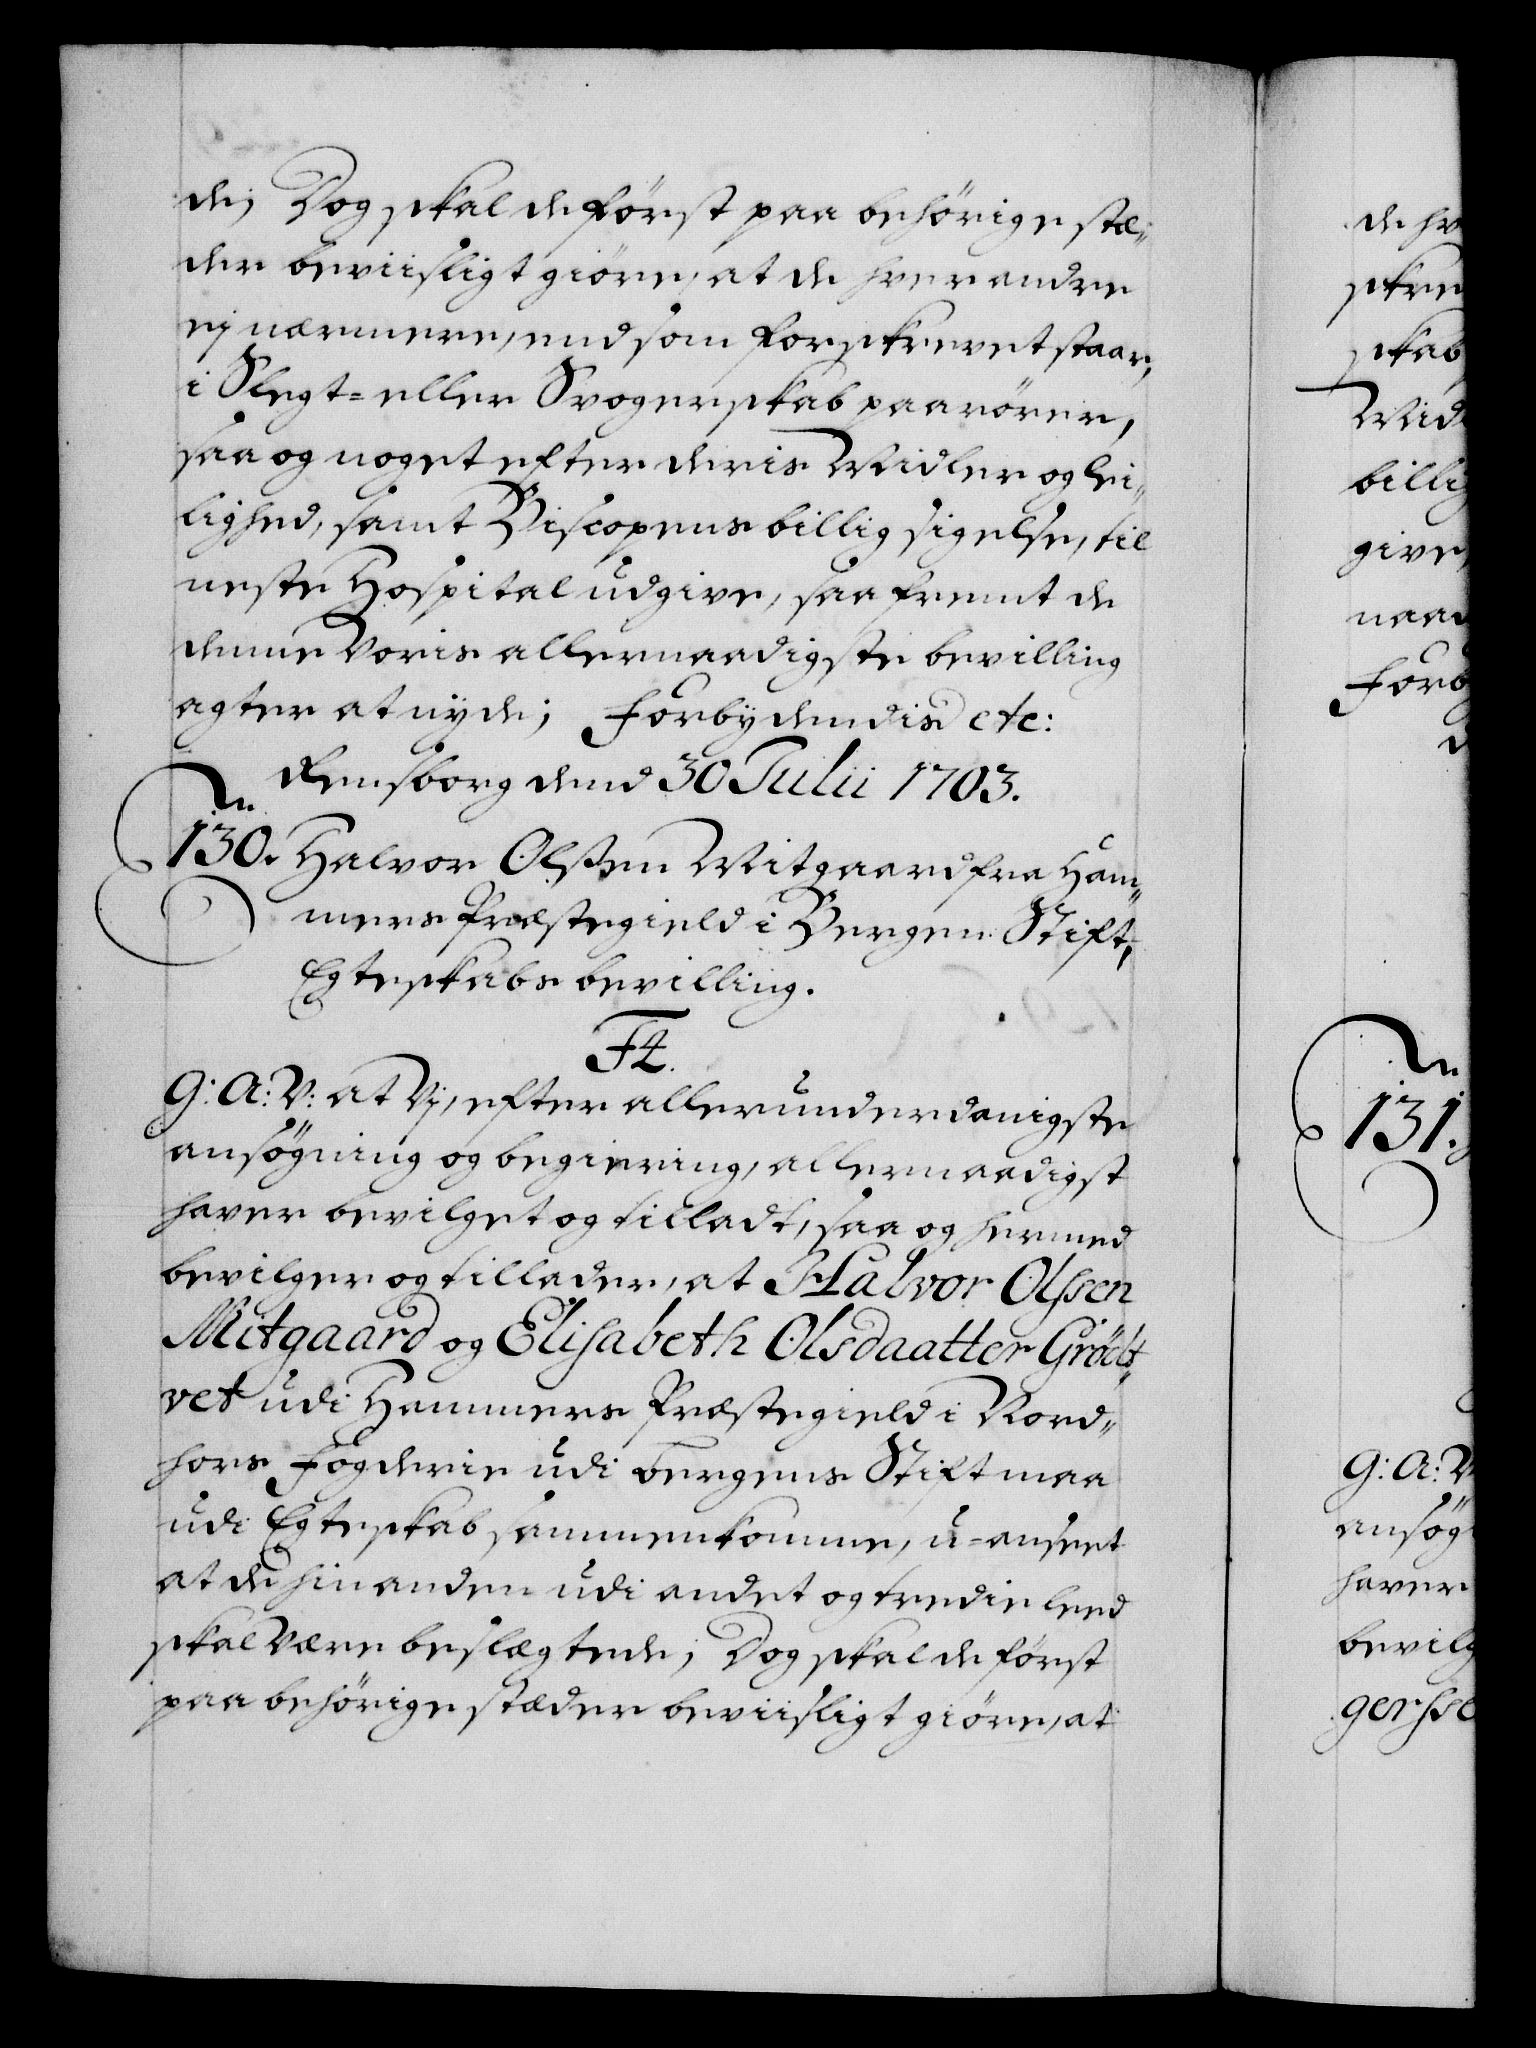 de; Dog skal de først paa behörige stæ-
der beviisligt giöre, at de hverandre
ej nærmere, end som forskrevet staar,
i Slegt= eller Svogerskab paarörer,
saa og noget efter deris Midler og lei-
lighed, samt Biscopens billig sigelse, til
neste Hospital udgive, saafremt de
denne Voris allernaadigste bevilling
agter at nyde; Forbydendis etc:
Rensborg dend 30 Julii 1703.
130. Halvor Olssen Mitgaard fra Ham-
mers Præstegield i Bergen Stift,
Egteskabs bevilling.
F4.
G: A: V: at Vj, efter allerunderdanigste
ansögning og begiering, allernaadigst
haver bevilget og tilladt, saa og hermed
bevilger og tillader, at Halvor Olssen
Mitgaard og Elisabeth Olsdaatter Grödt-
vet udi Hammers Præstegield i Nord-
hors Fogderie udi Bergens Stift maa
udi Egteskab sammenkomme, u=anseet
at de hinanden udi andet og tredie leed
skal være beslægtede; Dog skal de först
paa behörige stæder beviisligt giöre, at
de hv
skrev
skab
Midl
billig
give,
naad
Forb
131.
G: A: V
ansög
haver
bevilg
gersse